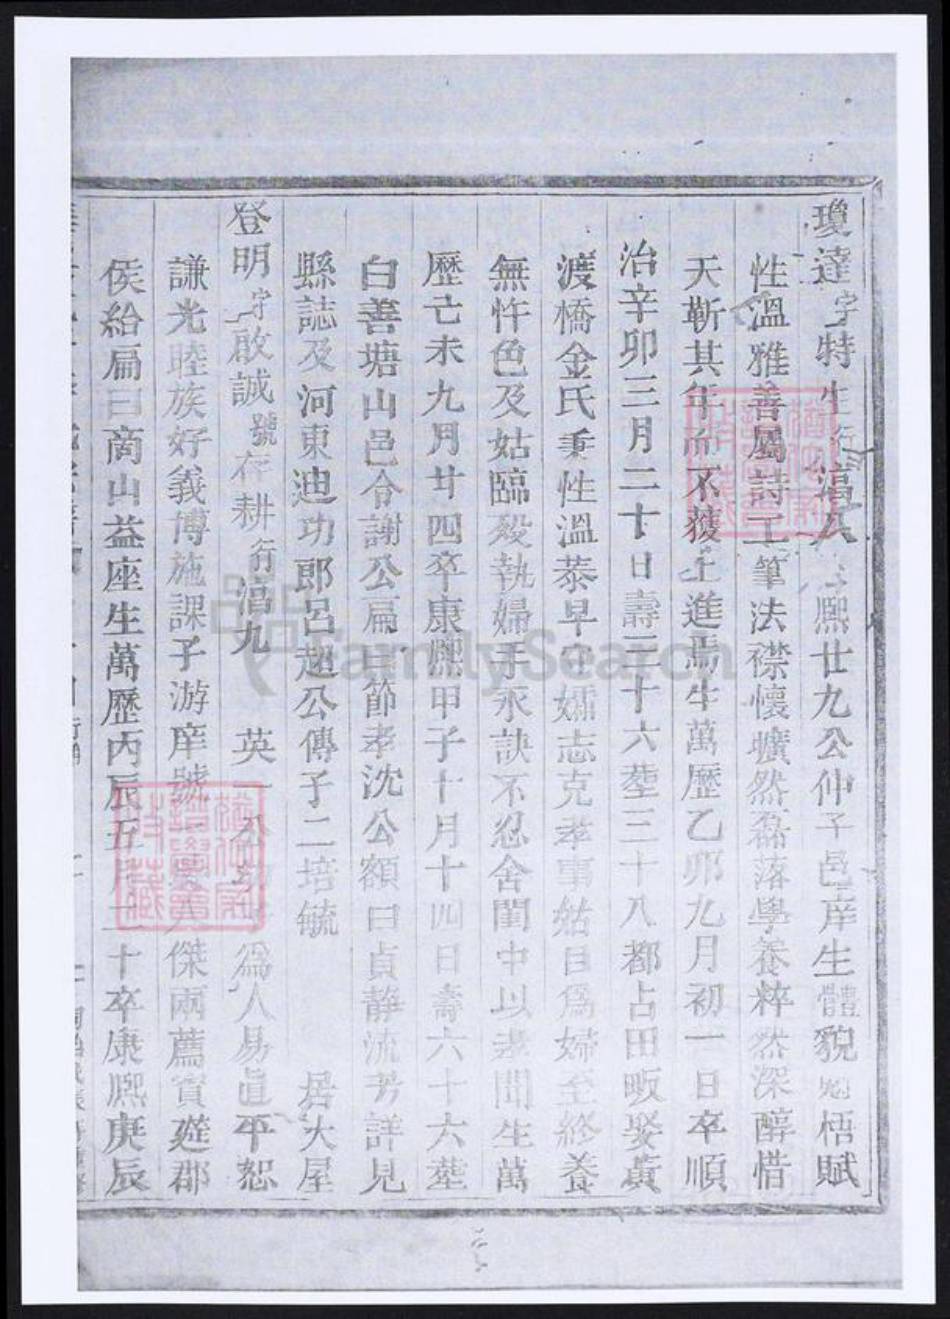 瓊達字特生行湻八 熙廿九公仲子邑庠生體貌魁梧賦
性溫雅善屬詩工筆法襟懷曠然磊落學養粹然深醇惜
天靳其年而不獲上進焉生萬歷乙卯九月初一日卒順
治辛卯三月二十日壽三十六塟三十八都占田畈娶黃
渡橋金氏秉性溫恭早守孀志克孝事姑自為婦至終養
無忤色及姑臨歿執婦手永訣不忍舍閨中以孝聞生萬
歷己未九月廿四卒康熙甲子十月十四日壽六十六塟
白善塘山邑令謝公扁曰節孝沈公額曰貞靜流芳詳見
縣誌及河東迪功郎呂超公傳子二培毓 居大屋
登明字啟誠號存耕行湻九 英一公 為人易直平恕
謙光睦族好義博施課子游庠號 八傑兩薦賓筵郡
侯給扁曰商山益座生萬歷丙辰五月二十卒康熙庚辰
FamilySearch